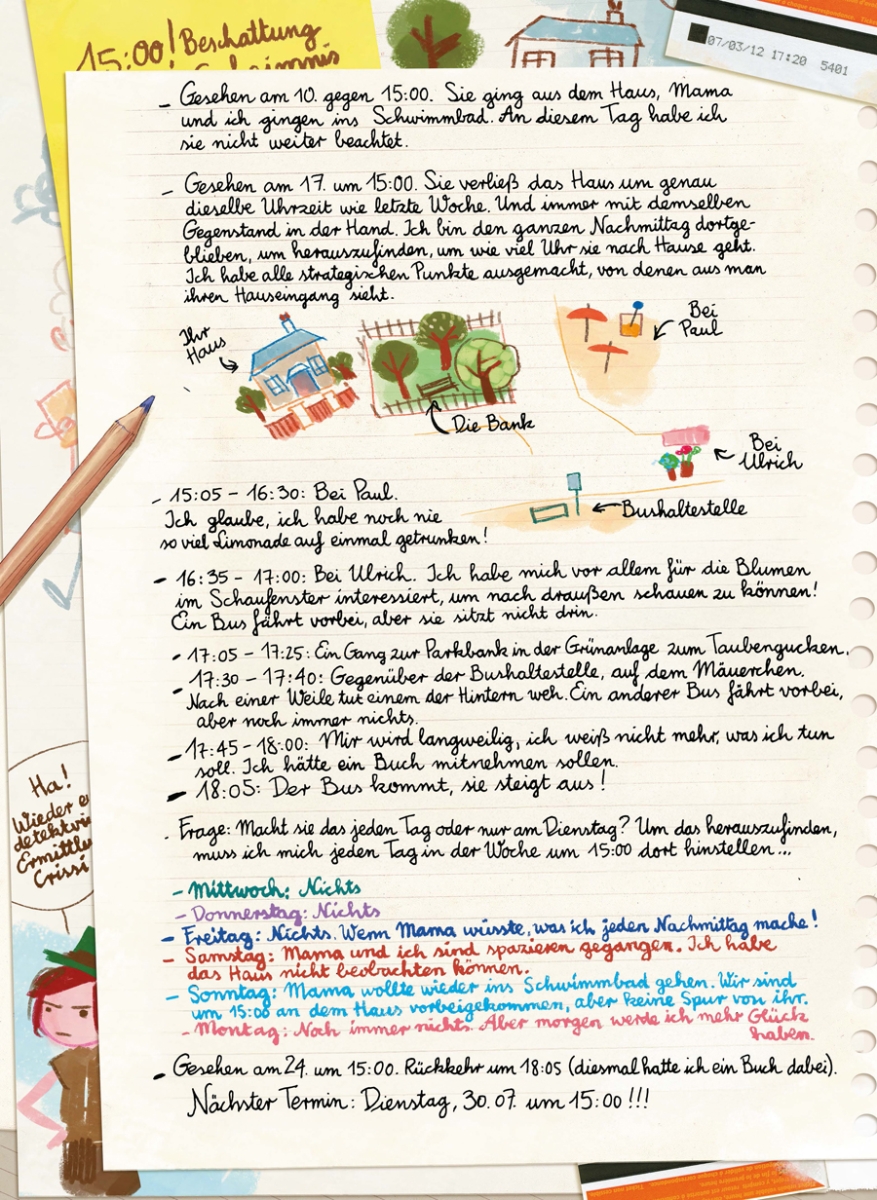 15:00! Beschattung
Geheimnis
07/03/12 17:20 5401
- Gesehen am 10. gegen 15:00. Sie ging aus dem Haus, Mama
und ich gingen ins Schwimmbad. An diesem Tag habe ich
sie nicht weiter beachtet.
- Gesehen am 17. um 15:00. Sie verließ das Haus um genau
dieselbe Uhrzeit wie letzte Woche. Und immer mit demselben
Gegenstand in der Hand. Ich bin den ganzen Nachmittag dortge-
blieben, um herauszufinden, um wie viel Uhr sie nach Hause geht.
Ich habe alle strategischen Punkte ausgemacht, von denen aus man
ihren Hauseingang sieht.
Ihr
Haus
Die Bank
Bei
Paul
Bei
Ulrich
Bushaltestelle
- 15:05 - 16:30: Bei Paul.
Ich glaube, ich habe noch nie
so viel Limonade auf einmal getrunken!
- 16:35 - 17:00: Bei Ulrich. Ich habe mich vor allem für die Blumen
im Schaufenster interessiert, um nach draußen schauen zu können!
Ein Bus fährt vorbei, aber sie sitzt nicht drin.
- 17:05 - 17:25: Ein Gang zur Parkbank in der Grünanlage zum Taubengucken.
- 17:30 - 17:40: Gegenüber der Bushaltestelle, auf dem Mäuerchen.
Nach einer Weile tut einem der Hintern weh. Ein anderer Bus fährt vorbei,
aber noch immer nichts.
- 17:45 - 18:00: Mir wird langweilig, ich weiß nicht mehr, was ich tun
soll. Ich hätte ein Buch mitnehmen sollen.
- 18:05: Der Bus kommt, sie steigt aus!
. Frage: Macht sie das jeden Tag oder nur am Dienstag? Um das herauszufinden,
muss ich mich jeden Tag in der Woche um 15:00 dort hinstellen...
- Mittwoch: Nichts
- Donnerstag: Nichts
- Freitag: Nichts. Wenn Mama wüsste, was ich jeden Nachmittag mache!
- Samstag: Mama und ich sind spazieren gegangen. Ich habe
das Haus nicht beobachten können.
- Sonntag: Mama wollte wieder ins Schwimmbad gehen. Wir sind
um 15:00 an dem Haus vorbeigekommen, aber keine Spur von ihr.
- Montag: Noch immer nichts. Aber morgen werde ich mehr Glück
haben.
- Gesehen am 24. um 15:00. Rückkehr um 18:05 (diesmal hatte ich ein Buch dabei).
Nächster Termin: Dienstag, 30.07. um 15:00!!!
Ha!
Wieder e
detektivi
Ermittlu
Crissi